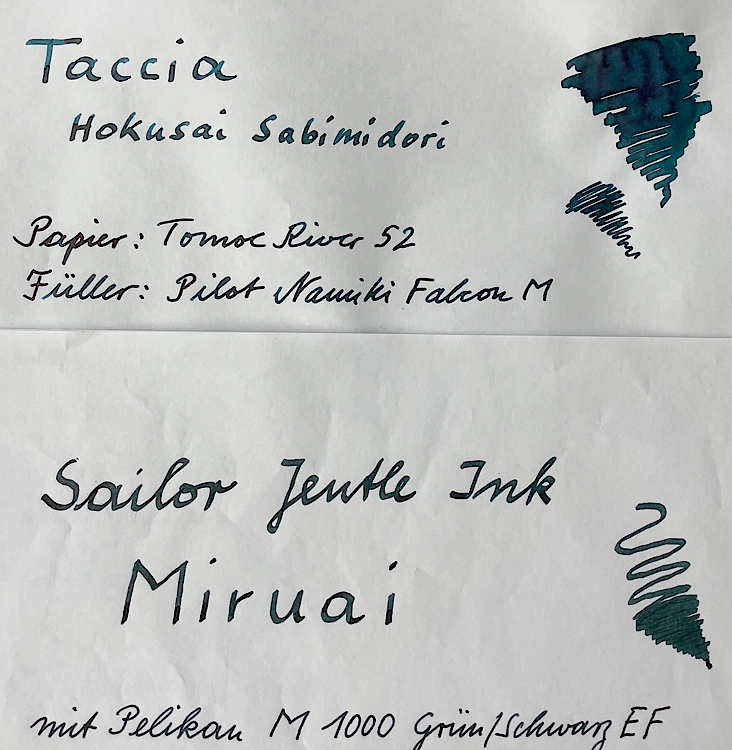 Taccia
Hokusai Sabimidori
Papier: Tomoe River 52
Füller: Pilot Namiki Falcon M
Sailor Jentle Ink
Miruai
mit Pelikan M 1000 Grün/Schwarz EF